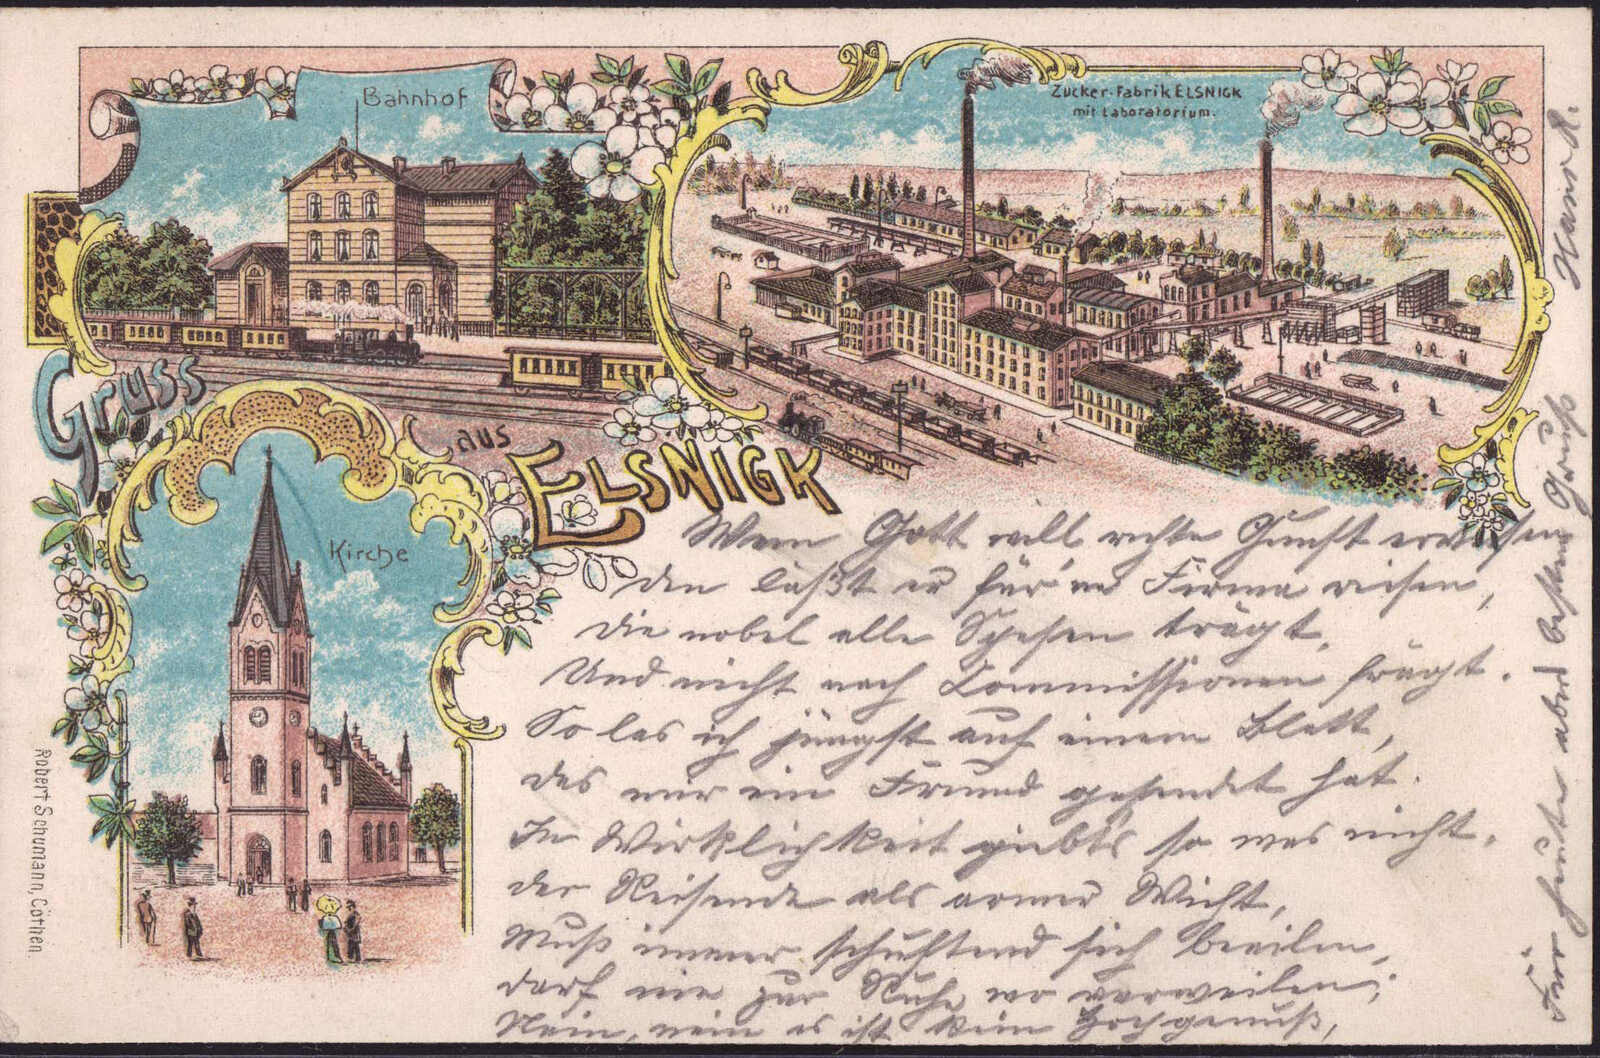 Bahnhof
Zucker-Fabrik ELSNIGK
mit Laboratorium.
Gruss
aus
ELSNIGK
Kirche
Robert Schumann, Cöthen.
Wem Gott will rechte Gunst erweisen
den läßt er für 'ne Firma reisen,
die nobel alle Spesen trägt,
Und nicht nach Commissionen frägt.
So las ich jüngst auf einem Blatt,
das mir ein Freund gesendet hat.
In Wirklichkeit giebt's so was nicht,
der Reisende als armer Wicht,
Muß immer schuftend sich beeilen,
darf nie zur Ruhe wo verweilen;
Nein, nein es ist kein Hochgenuß,
Für heute aber besten Gruß
Hans R.